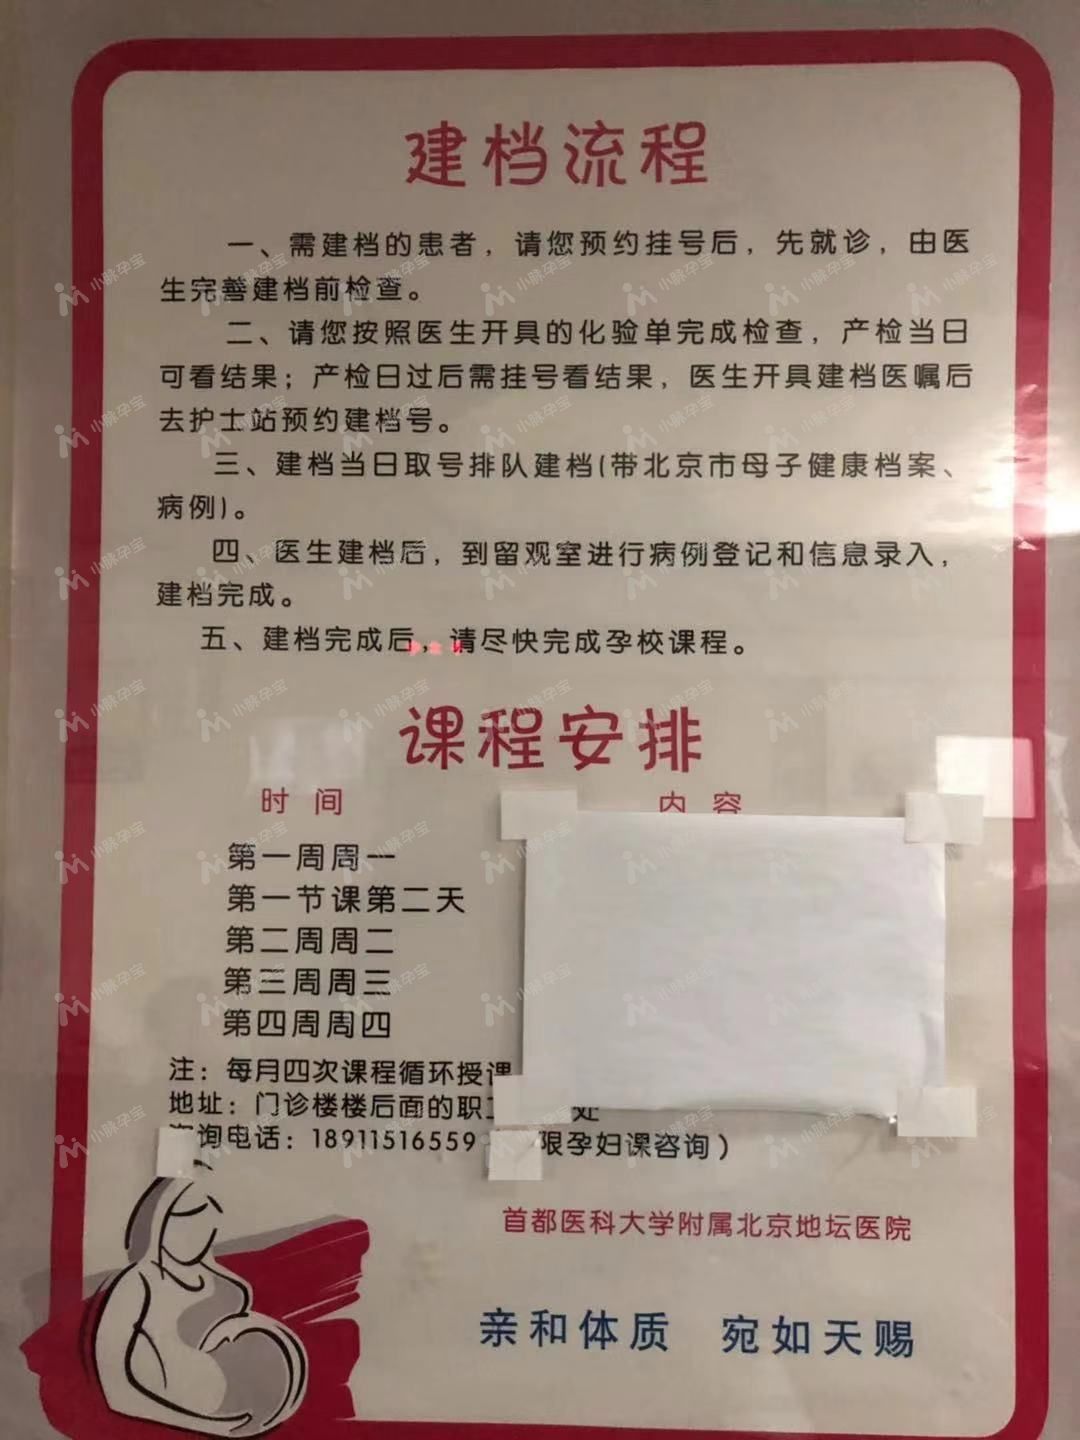 建档流程
一、需建档的患者，请您预约挂号后，先就诊，由医
生完善建档前检查。
二、请您按照医生开具的化验单完成检查，产检当日
可看结果；产检日过后需挂号看结果，医生开具建档医嘱后
去护士站预约建档号。
三、建档当日取号排队建档(带北京市母子健康档案、
病例)。
四、医生建档后，到留观室进行病例登记和信息录入，
建档完成。
五、建档完成后，请尽快完成孕校课程。
课程安排
时间 内容
第一周周一
第一节课第二天
第二周周二
第三周周三
第四周周四
注：每月四次课程循环授课
地址：门诊楼楼后面的职工 处
咨询电话：18911516559 限孕妇课咨询）
首都医科大学附属北京地坛医院
亲和体质 宛如天赐
小脉孕宝